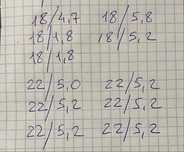 18/4,7 18/5,8
18/1,8 18/5,2
18/1,8
22/5,0 22/5,2
22/5,2 22/5,2
22/5,2 22/5,2